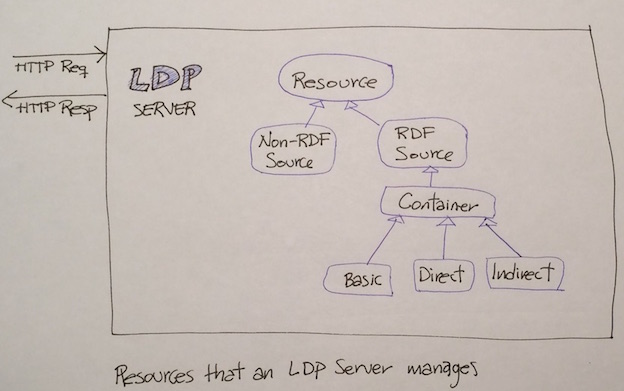 HTTP Req
HTTP Resp
LDP
SERVER
Resource
Non-RDF
Source
RDF
Source
Container
Basic
Direct
Indirect
Resources that an LDP Server manages